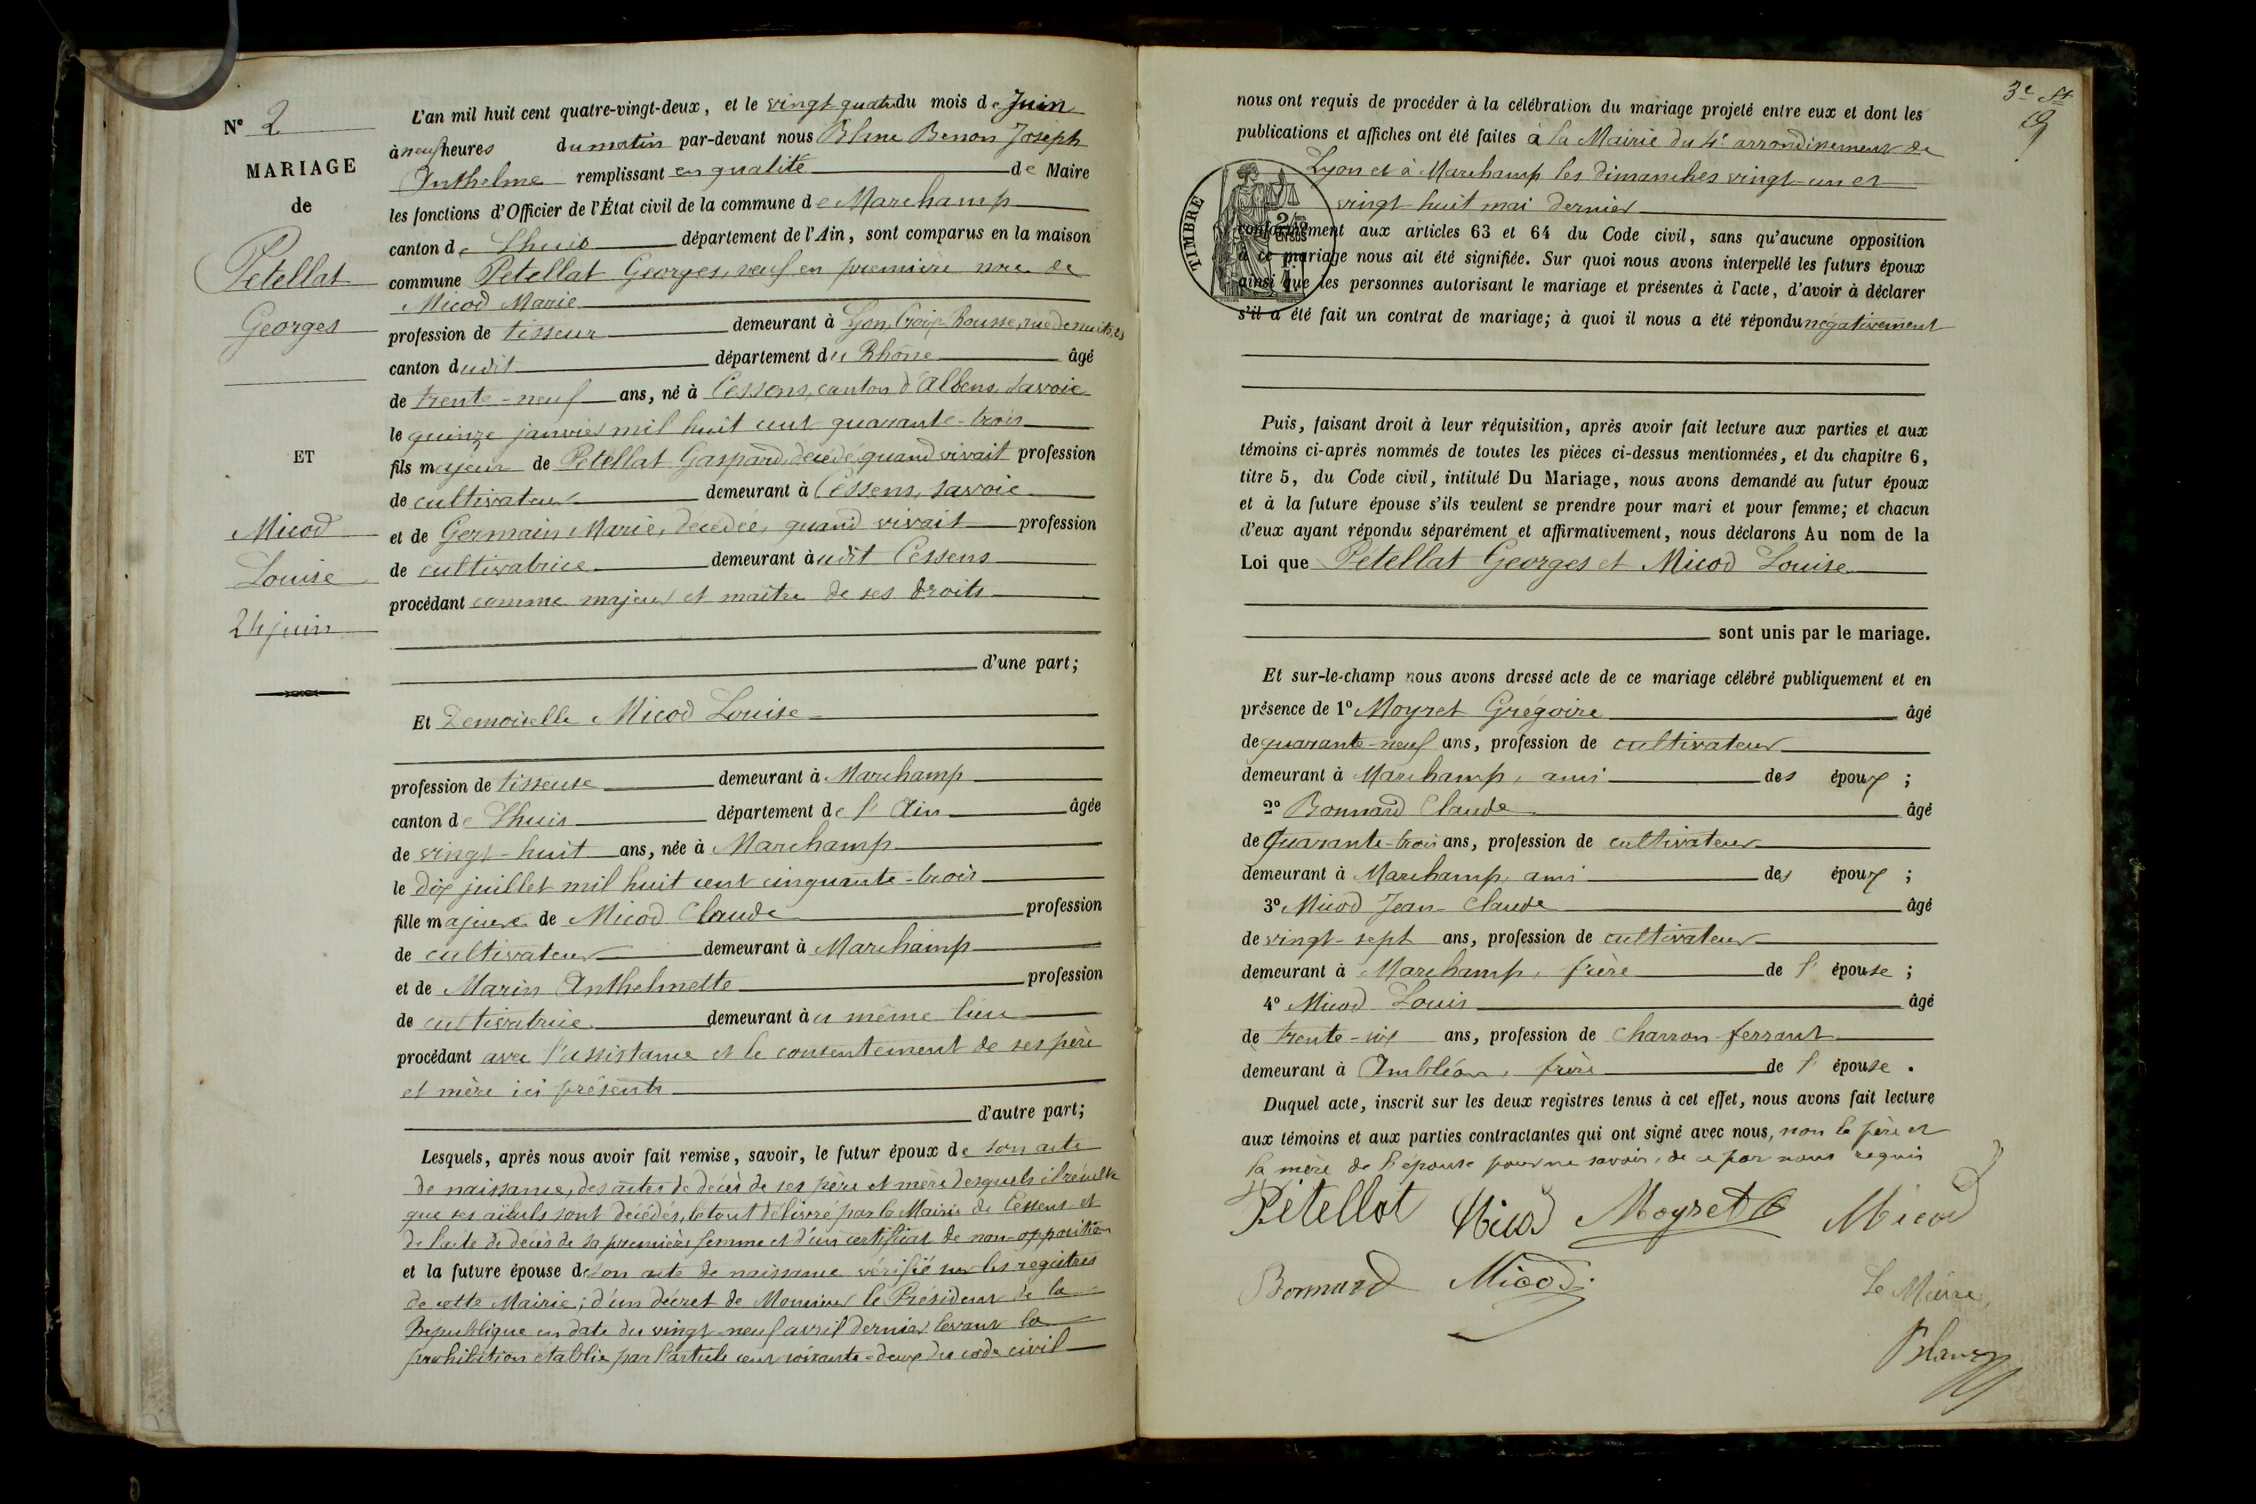 N° 2
MARIAGE
de
Petellat
Georges
ET
Micod
Louise
24 juin
L'an mil huit cent quatre-vingt-deux, et le vingt-quatre du mois de Juin
à neuf heures du matin par-devant nous Benon Joseph
Anthelme remplissant en qualité de Maire
les fonctions d'Officier de l'État civil de la commune de Marchamp
canton de Lhuis département de l'Ain, sont comparus en la maison
commune Petellat Georges, veuf en première noce de
Micod Marie
profession de tisseur demeurant à Lyon, Croix-Rousse, rue de nuits,
canton dudit département du Rhône âgé
de trente-neuf ans, né à Cessens, canton d'Albens, Savoie
le quinze janvier mil huit cent quarante-trois
fils majeur de Petellat Gaspard, décédé, quand vivait profession
de cultivateur demeurant à Cessens, Savoie
et de Germain Marie, décédée, quand vivait profession
de cultivatrice demeurant àudit Cessens
procédant comme majeur et maître de ses droits
d'une part;
Et Demoiselle Micod Louise
profession de tisseuse demeurant à Marchamp
canton de Lhuis département de l'Ain âgée
de vingt-huit ans, née à Marchamp
le dix juillet mil huit cent cinquante-trois
fille majeure de Micod Claude profession
de cultivateur demeurant à Marchamp
et de Marin Anthelmette profession
de cultivatrice demeurant àu même lieu
procédant avec l'assistance et le consentement de ses père
et mère ici présents
d'autre part;
Lesquels, après nous avoir fait remise, savoir, le futur époux de son acte
de naissance, des actes de décès de ses père et mère desquels il résulte
que ses aïeuls sont décédés, le tout délivré par la Mairie de Cessens et
de l'acte de décès de sa première femme et d'un certificat de non-opposition
et la future épouse de son acte de naissance vérifié sur les registres
de cette Mairie; d'un décret de Monsieur le Président de la
République en date du vingt-neuf avril dernier levant la
prohibition établie par l'article cent soixante-deux du code civil
3e
19
nous ont requis de procéder à la célébration du mariage projeté entre eux et dont les
publications et affiches ont été faites à la Mairie du 4e arrondissement de
Lyon et à Marchamp les dimanches vingt-un et
vingt-huit mai dernier
TIMBRE
conformément aux articles 63 et 64 du Code civil, sans qu'aucune opposition
à ce mariage nous ait été signifiée. Sur quoi nous avons interpellé les futurs époux
ainsi que les personnes autorisant le mariage et présentes à l'acte, d'avoir à déclarer
s'il a été fait un contrat de mariage; à quoi il nous a été répondu négativement
Puis, faisant droit à leur réquisition, après avoir fait lecture aux parties et aux
témoins ci-après nommés de toutes les pièces ci-dessus mentionnées, et du chapitre 6,
titre 5, du Code civil, intitulé Du Mariage, nous avons demandé au futur époux
et à la future épouse s'ils veulent se prendre pour mari et pour femme; et chacun
d'eux ayant répondu séparément et affirmativement, nous déclarons Au nom de la
Loi que Petellat Georges et Micod Louise
sont unis par le mariage.
Et sur-le-champ nous avons dressé acte de ce mariage célébré publiquement et en
présence de 1° Moyret Grégoire âgé
de quarante-neuf ans, profession de cultivateur
demeurant à Marchamp, ami des époux ;
2° Bonnard Claude âgé
de quarante-trois ans, profession de cultivateur
demeurant à Marchamp, ami des époux ;
3° Micod Jean-Claude âgé
de vingt-sept ans, profession de cultivateur
demeurant à Marchamp, frère de l'épouse ;
4° Micod Louis âgé
de trente-six ans, profession de charron-ferrant
demeurant à Ambléon, frère de l'épouse .
Duquel acte, inscrit sur les deux registres tenus à cet effet, nous avons fait lecture
aux témoins et aux parties contractantes qui ont signé avec nous, non le père et
la mère de l'épouse pour ne savoir, de ce par nous requis
Pétellat Micod Moyret G Micod
Bonnard Micod
Le Maire,